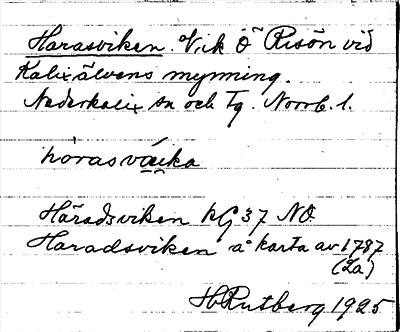 Harasviken. Vik Ö Risön vid
Kalixälvens mynning.
Nederkalix sn och tg. Norrb. l.
hórasvæika
Häradsviken KG 37 NO.
Haradsviken å karta av 1787
(La)
H Rutberg 1925